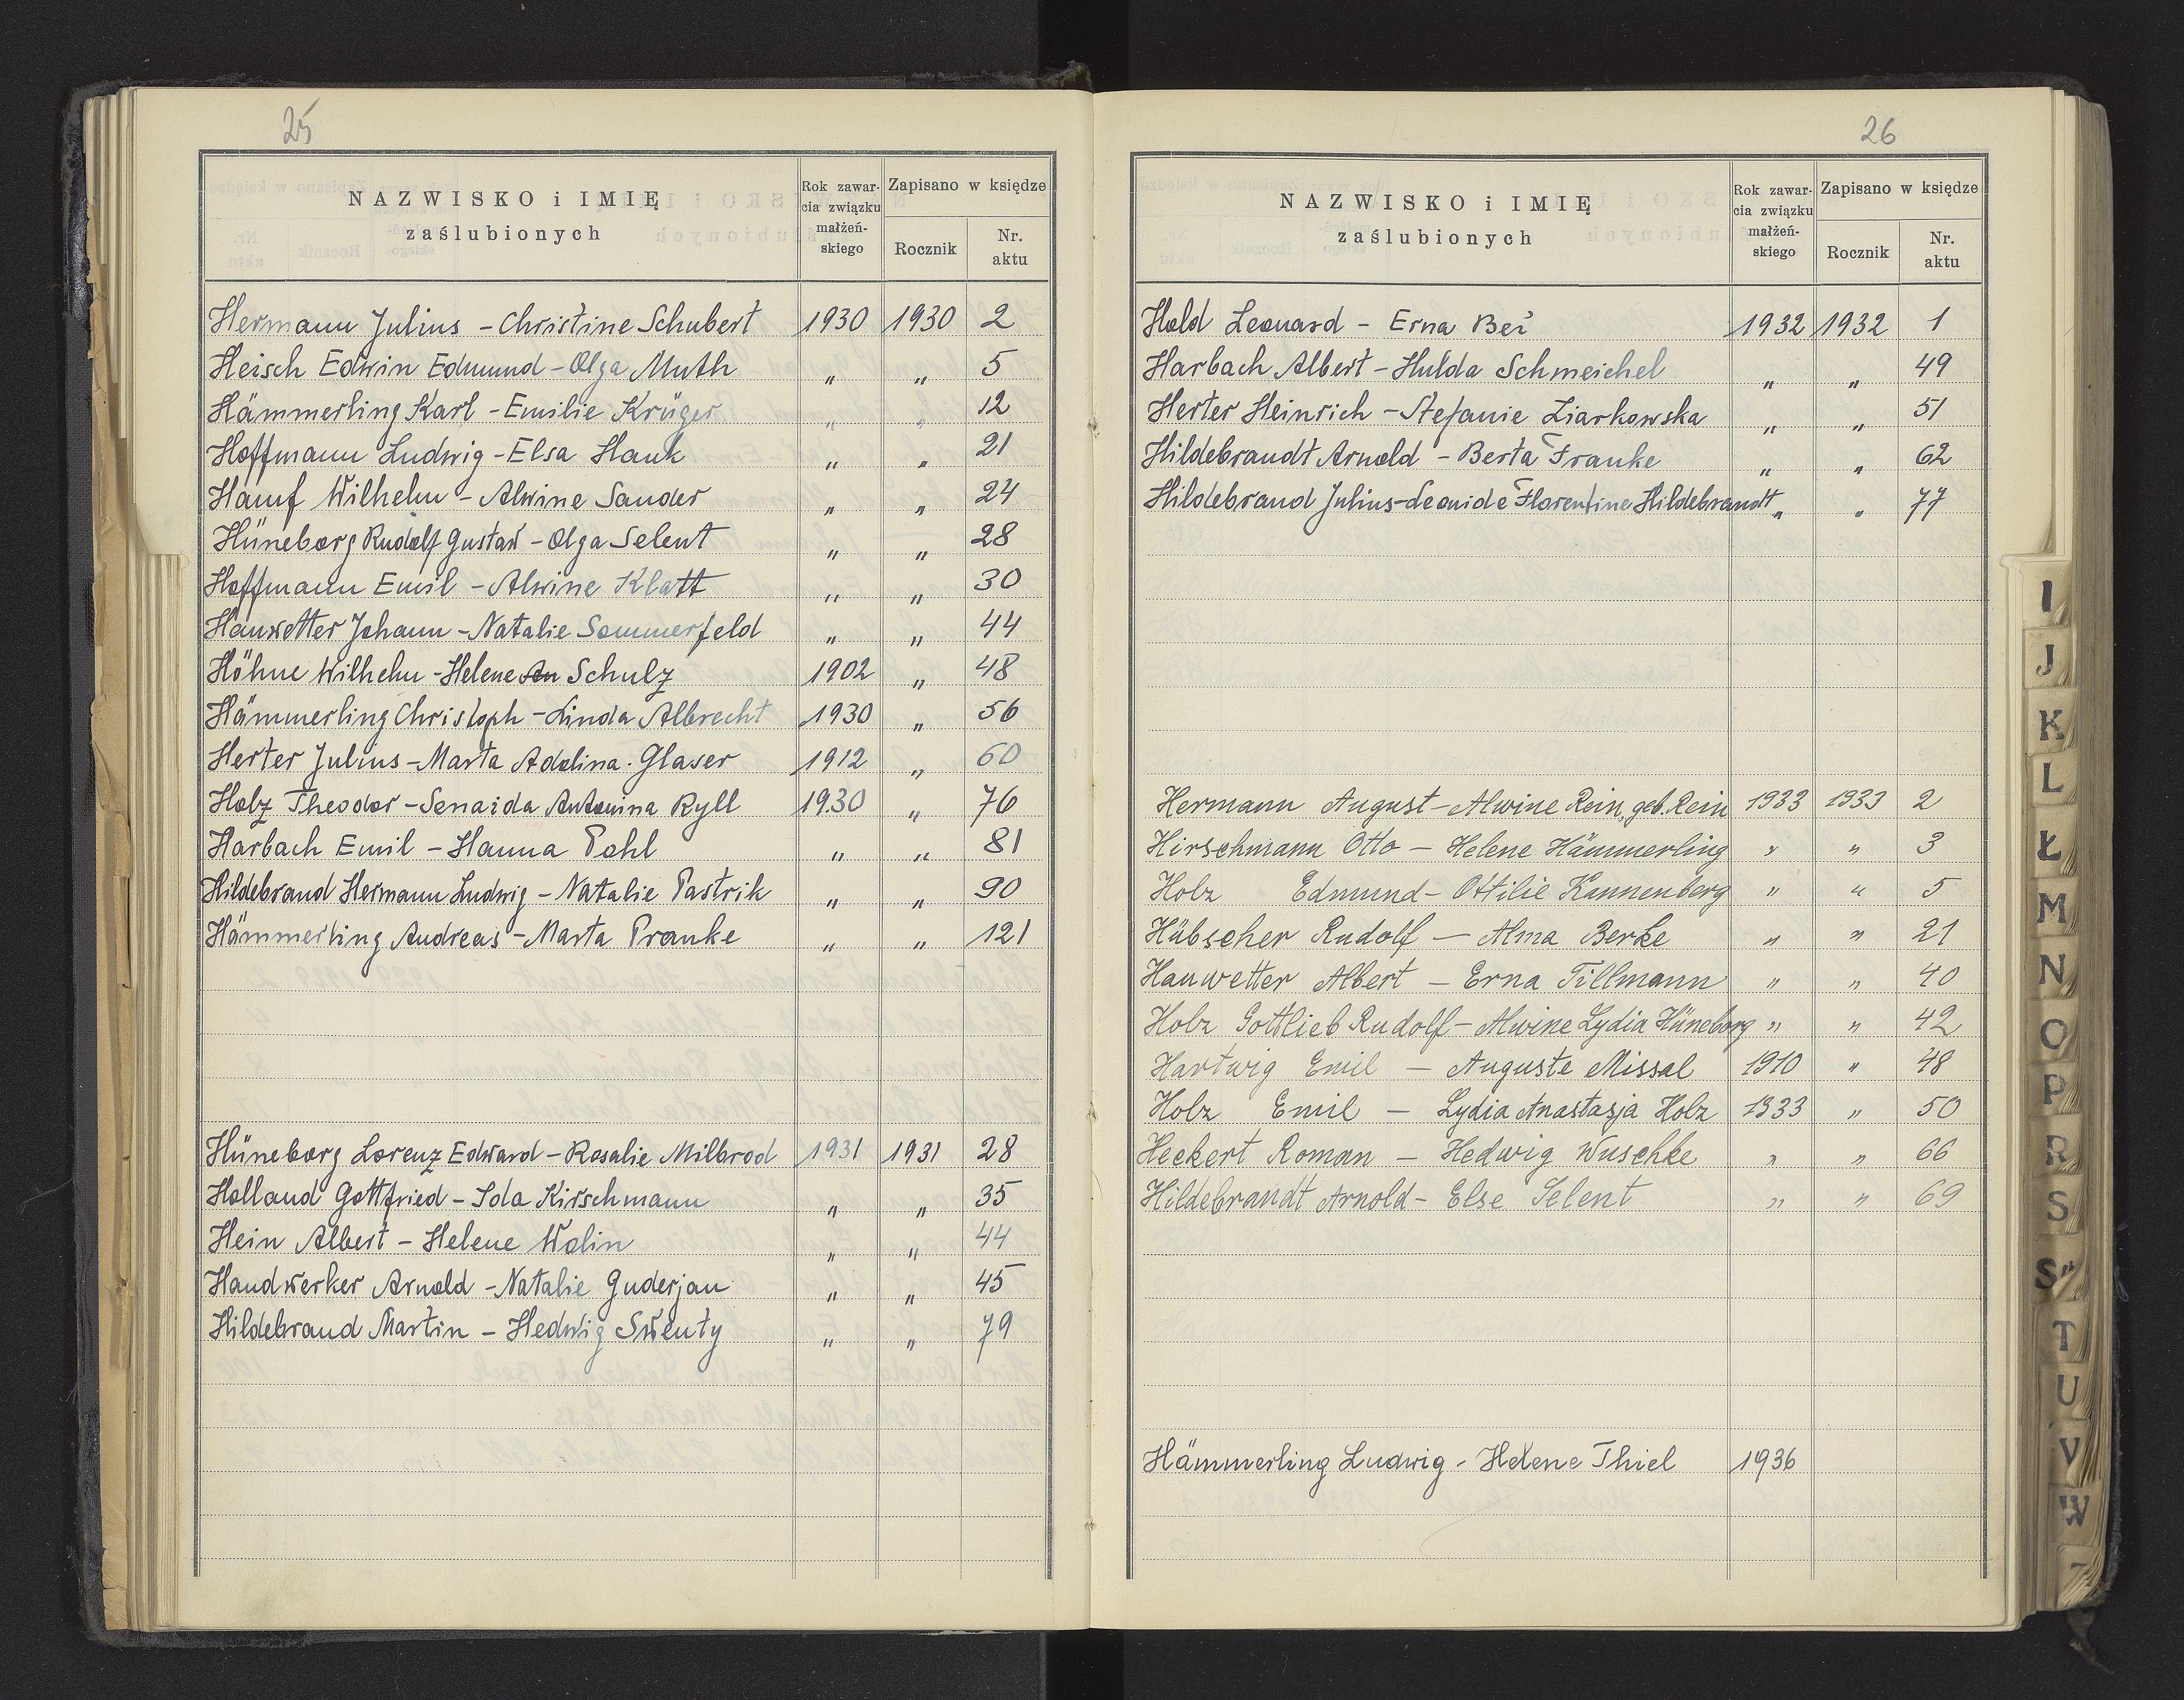 25
NAZWISKO i IMIĘ
zaślubionych
Rok zawar-
cia związku
małżeń-
skiego
Zapisano w księdze
Rocznik
Nr.
aktu
Hermann Julius - Christine Schubert 1930 1930 2
Heisch Edwin Edmund - Olga Muth " " 5
Hämmerling Karl - Emilie Krüger " " 12
Hoffmann Ludwig - Elsa Hauk " " 21
Hamf Wilhelm - Alwine Sander " " 24
Hüneborg Rudolf Gustaw - Olga Selent " " 28
Hoffmann Emil - Alwine Klatt " " 30
Hauwetter Johann - Natalie Sommerfeld " " 44
Höhne Wilhelm - Helene Schulz 1902 " 48
Hämmerling Christoph - Linda Albrecht 1930 " 56
Herter Julius - Marta Adolina Glaser 1912 " 60
Holz Theodor - Senaida Antonina Ryll 1930 " 76
Harbach Emil - Hanna Pohl " " 81
Hildebrand Hermann Ludwig - Natalie Pastrik " " 90
Hämmerling Andreas - Marta Pranke " " 121
Hüneborg Lorenz Edward - Rosalie Milbrod 1931 1931 28
Holland Gottfried - Ida Kirschmann " " 35
Hein Albert - Helene Wolin " " 44
Handwerker Arnold - Natalie Guderjan " " 45
Hildebrand Martin - Hedwig Swenty " " 79
26
NAZWISKO i IMIĘ
zaślubionych
Rok zawar-
cia związku
małżeń-
skiego
Zapisano w księdze
Rocznik
Nr.
aktu
Hold Leonard - Erna Bei 1932 1932 1
Harbach Albert - Hulda Schmeichel " " 49
Herter Heinrich - Stefanie Ziarkowska " " 51
Hildebrandt Arnold - Berta Franke " " 62
Hildebrand Julius - Leonide Florentine Hildebrandt " " 77
Hermann August - Alwine Rein, geb. Rein 1933 1933 2
Hirschmann Otto - Helene Hämmerling " " 3
Holz Edmund - Ottilie Kannenberg " " 5
Hübscher Rudolf - Alma Berke " " 21
Hauwetter Albert - Erna Tillmann " " 40
Holz Gottlieb Rudolf - Alwine Lydia Hüneborg " " 42
Hartwig Emil - Auguste Missal 1910 " 48
Holz Emil - Lydia Anastasja Holz 1933 " 50
Heckert Roman - Hedwig Wuschke " " 66
Hildebrandt Arnold - Else Selent " " 69
Hämmerling Ludwig - Helene Thiel 1936
I
J
K
L
Ł
M
N
O
P
R
S
Ś
T
U
V
W
Z